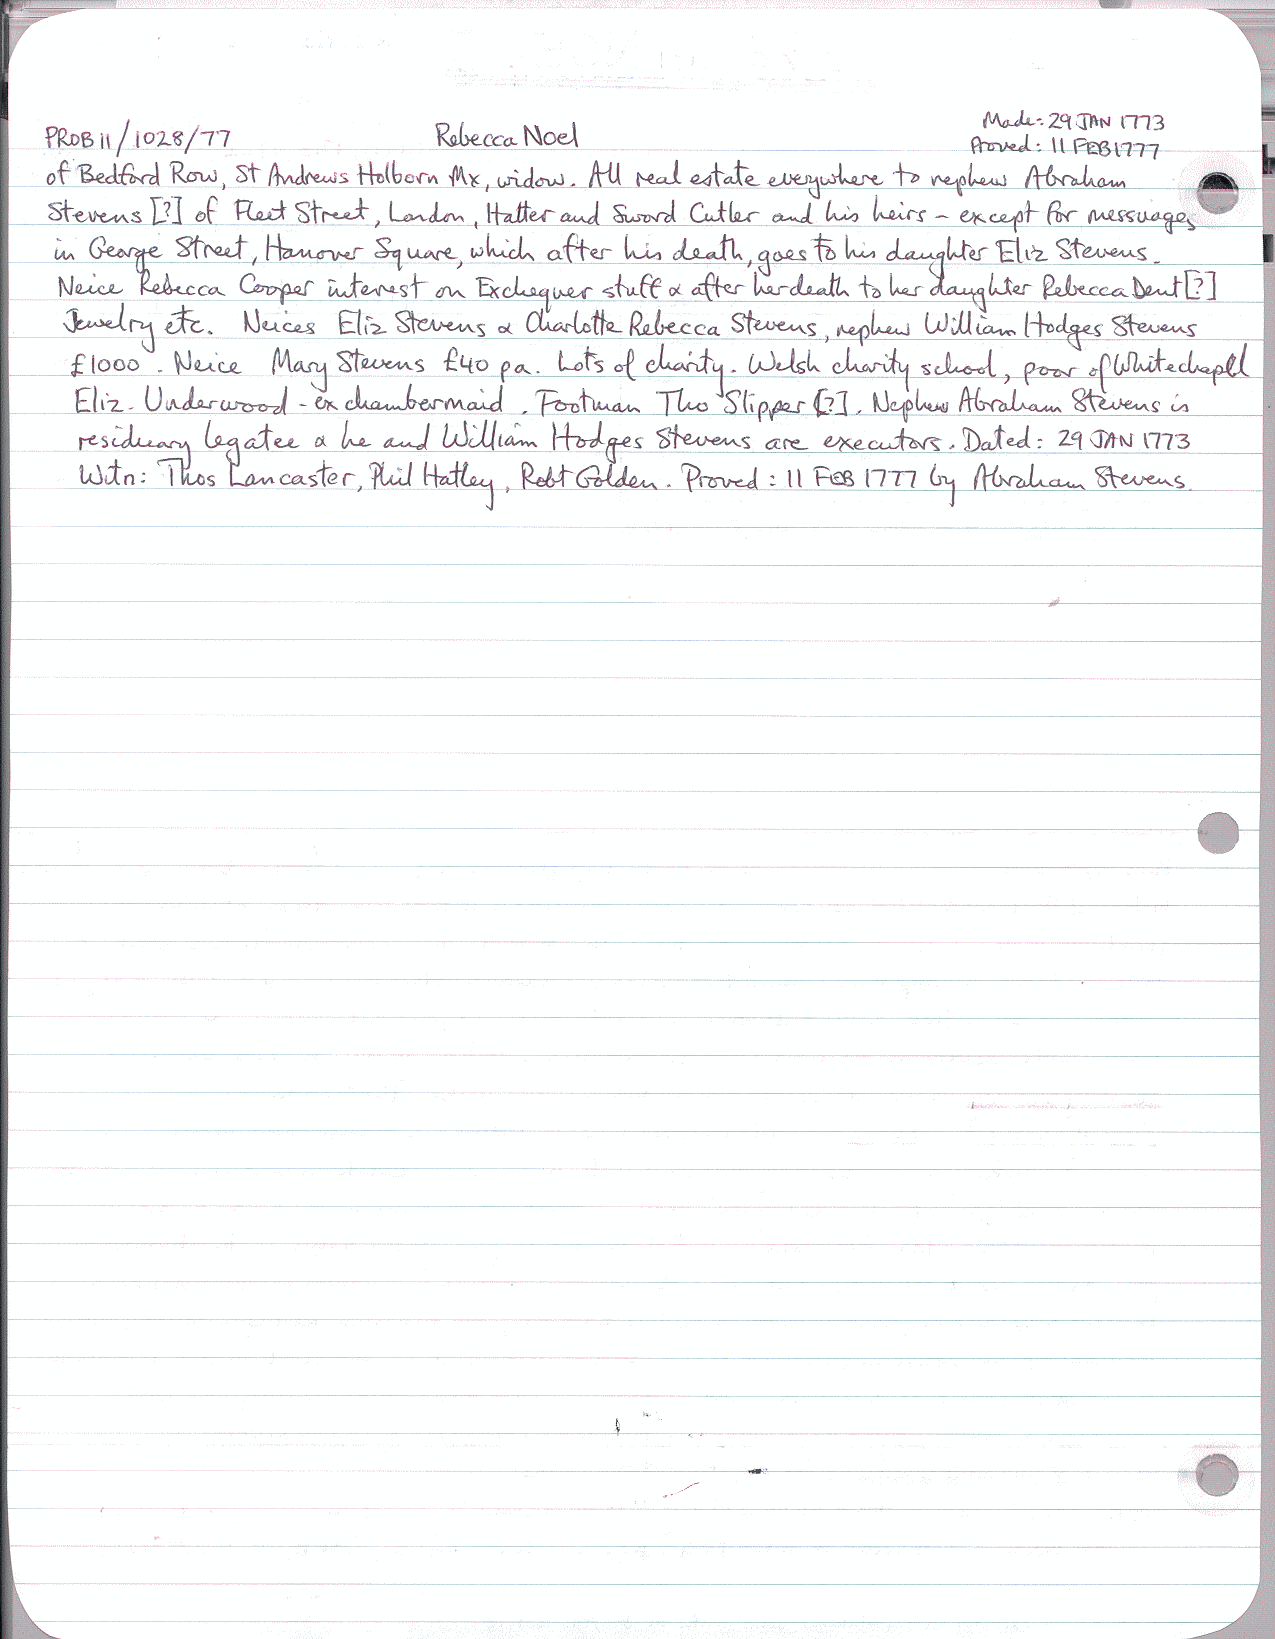 Made: 29 JAN 1773
PROB 11/1028/77 Rebecca Noel Proved: 11 FEB 1777
of Bedford Row, St Andrews Holborn Mx, widow. All real estate everywhere to nephew Abraham
Stevens [?] of Fleet Street, London, Hatter and Sword Cutler and his heirs - except for messuages
in George Street, Hanover Square, which after his death, goes to his daughter Eliz Stevens.
Neice Rebecca Cooper interest on Exchequer stuff & after her death to her daughter Rebecca Dent [?]
Jewelry etc. Neices Eliz Stevens & Charlotte Rebecca Stevens, nephew William Hodges Stevens
£1000. Neice Mary Stevens £40 pa. Lots of charity. Welsh charity school, poor of Whitechapell
Eliz. Underwood - ex chambermaid. Footman Tho Slipper [?]. Nephew Abraham Stevens is
residuary legatee & he and William Hodges Stevens are executors. Dated: 29 JAN 1773
Witn: Thos Lancaster, Phil Hatley, Robt Golden. Proved: 11 FEB 1777 by Abraham Stevens.